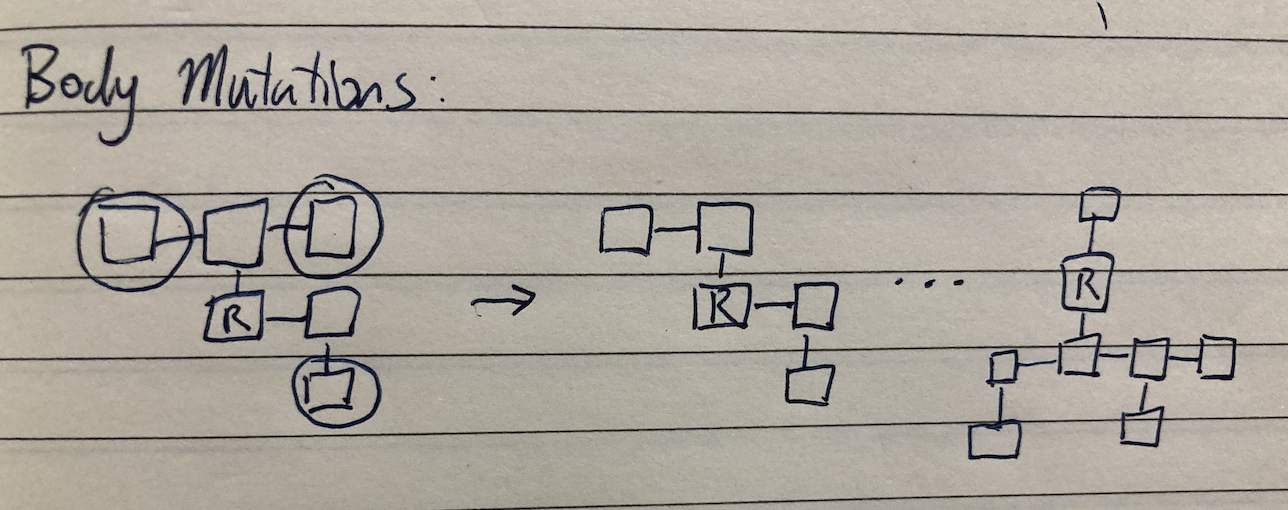 Body Mutations:
R
R
...
R